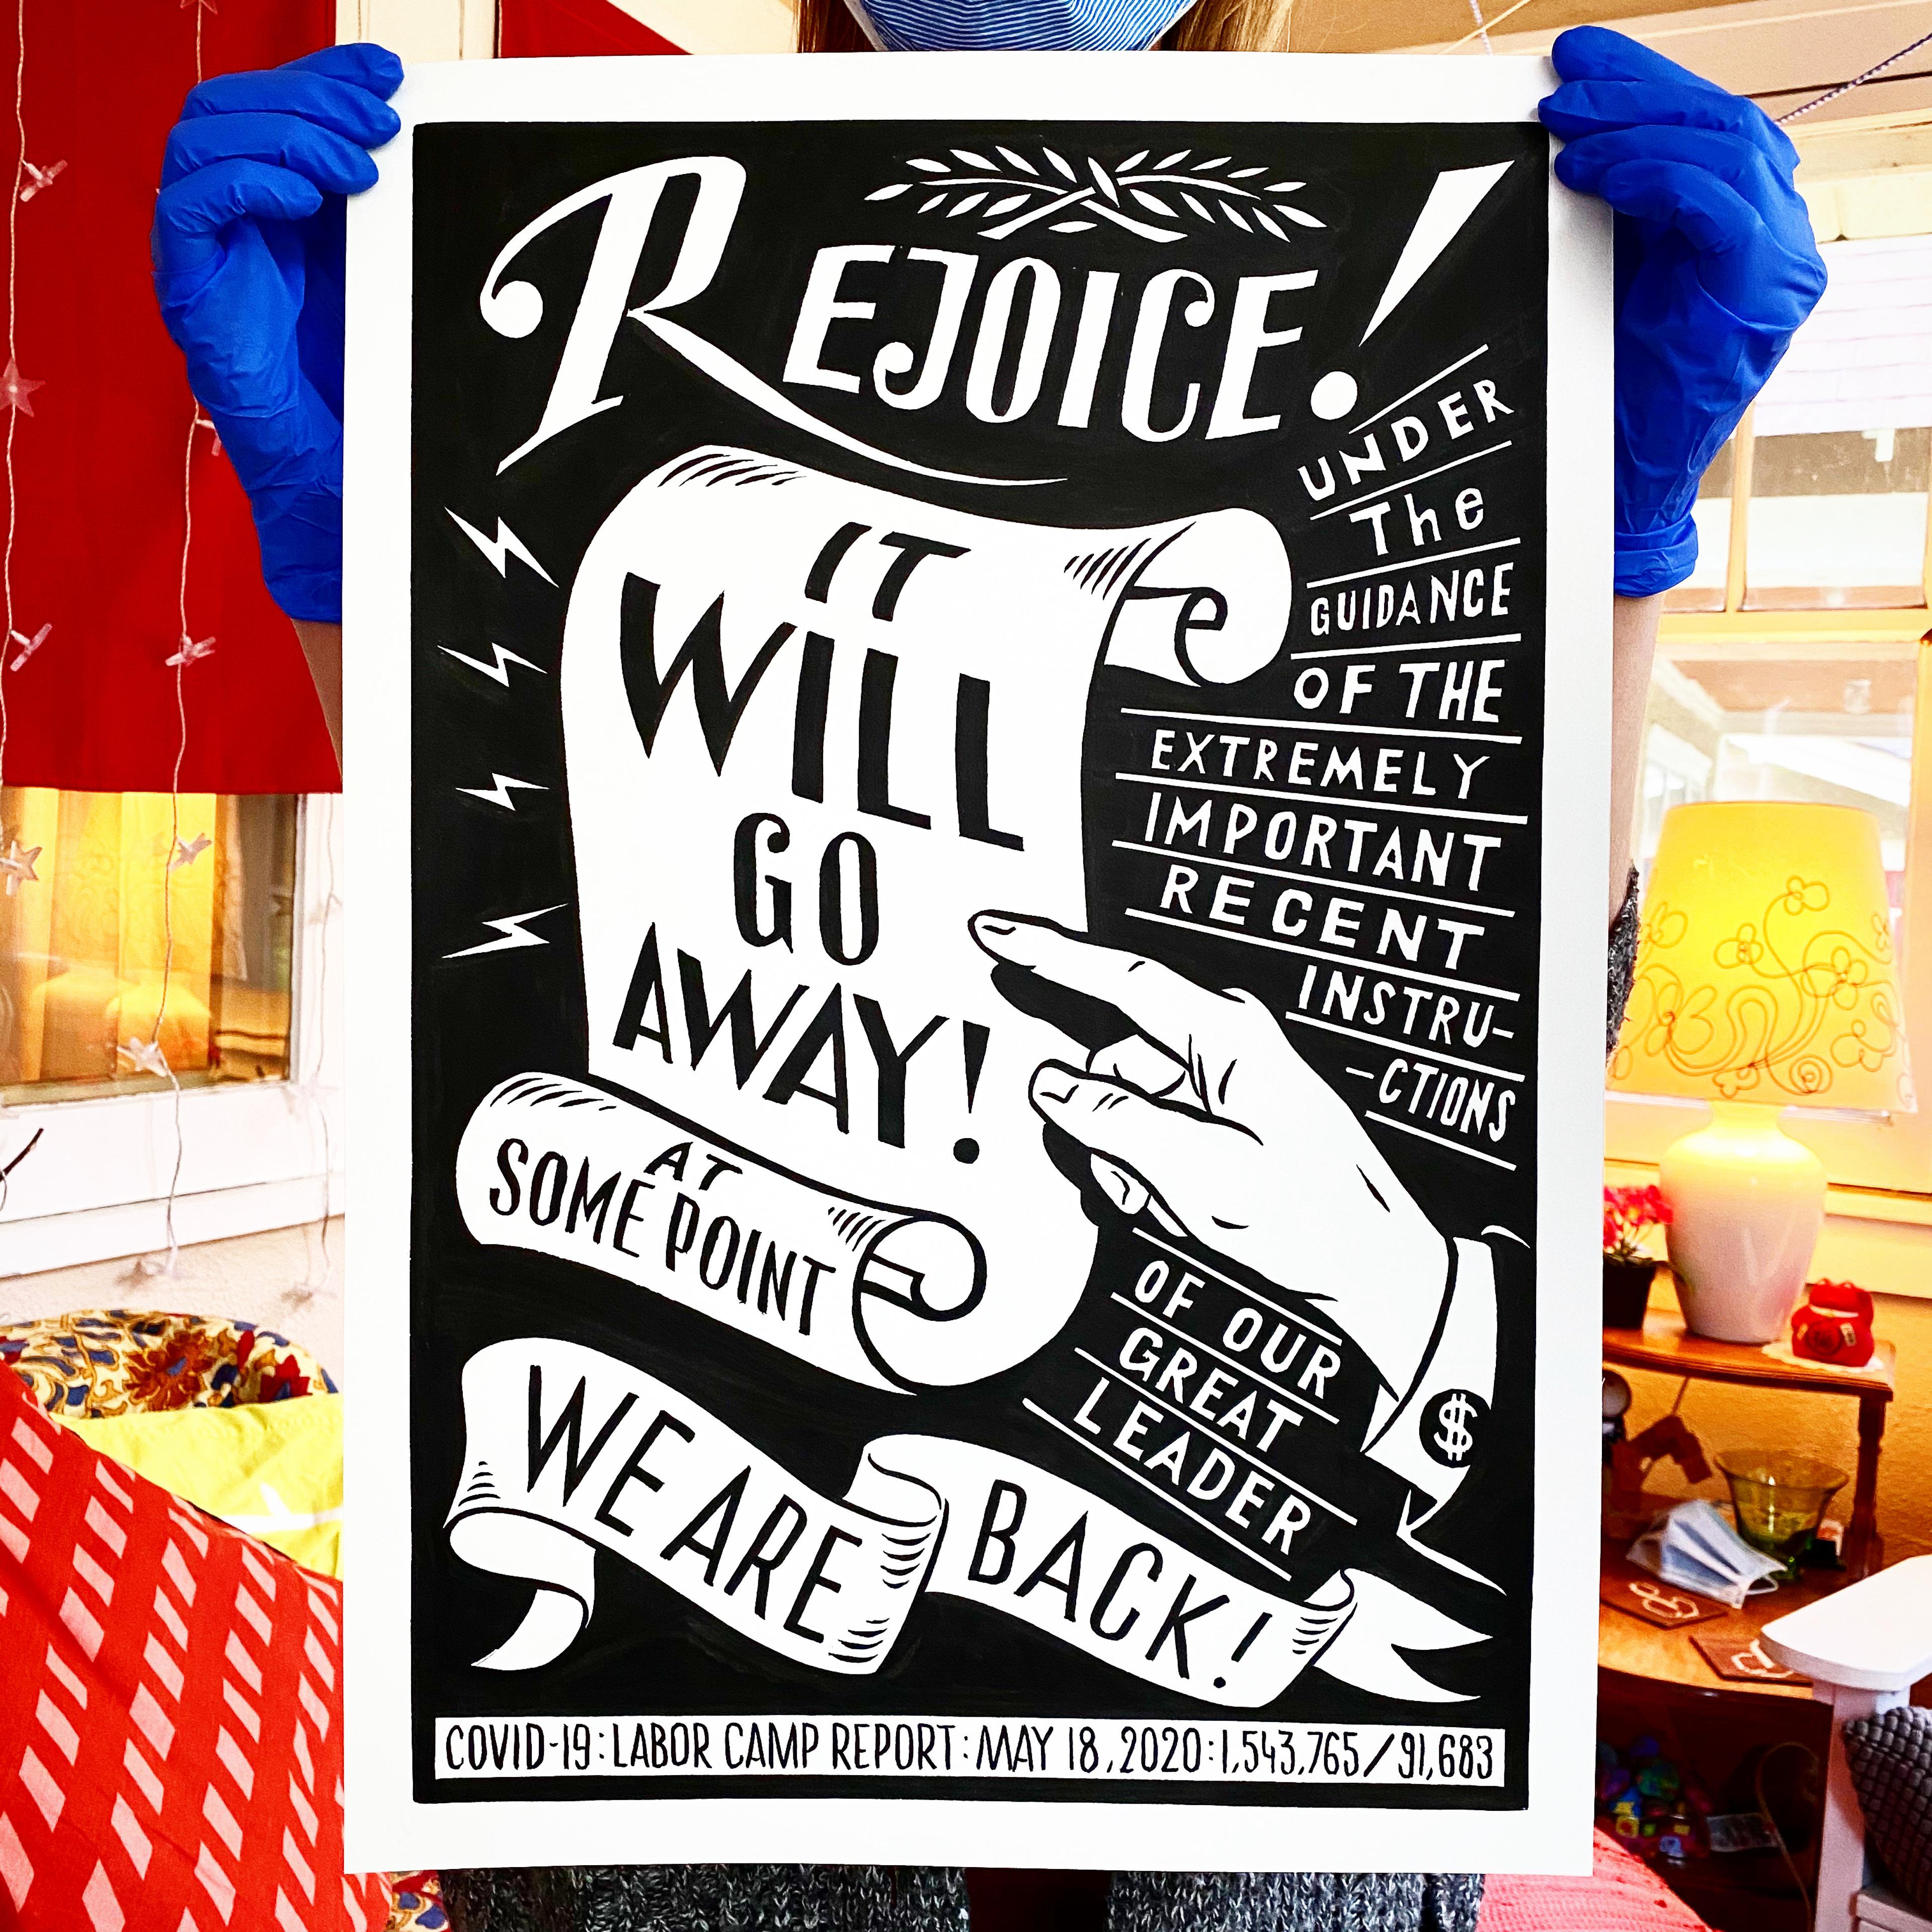 REJOICE!
IT
WILL
GO
AWAY!
AT
SOME POINT
UNDER
The
GUIDANCE
OF THE
EXTREMELY
IMPORTANT
RECENT
INSTRU-
-CTIONS
OF OUR
GREAT
LEADER
$
WE ARE BACK!
COVID-19: LABOR CAMP REPORT: MAY 18, 2020: 1,543,765/91,683